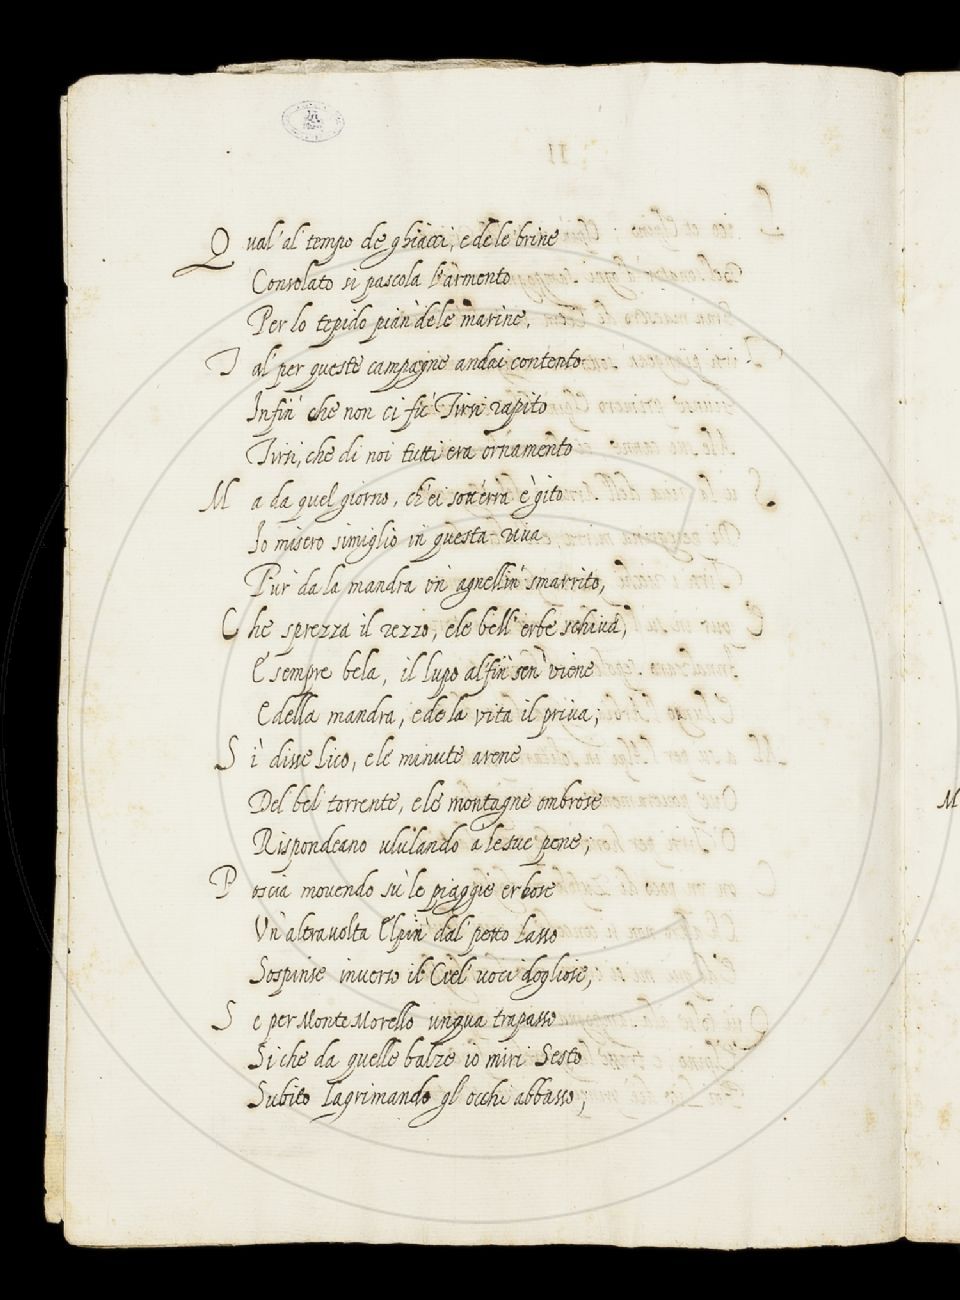 Qual' al tempo de ghiacci, e de le brine
Consolato si pascola l'armento
Per lo tepido pian de le marine,
Tal per queste campagne andai contento
Infin' che non ci fù Tirsi rapito
Tirsi, che di noi tutti era ornamento
Ma da quel giorno, ch'ei sotterra è gito
Io misero simiglio in questa riva
Pur' da la mandra un' agnellin' smarrito,
Che sprezza il rezzo, e le bell' erbe schiva,
E sempre bela, il lupo alfin' sen' viene
E della mandra, e de la vita il priva;
Sì disse Lico, e le minute arene
Del bel torrente, e le montagne ombrose
Rispondeano ululando a le sue pene;
Poscia movendo sù le piaggie erbose
Un'altra volta Elpin' dal petto lasso
Sospinse inverso il Ciel' voci dogliose,
Se per Monte Morello unqua trapasso
Si che da quelle balze io miri Sesto
Subito lagrimando gl' occhi abbasso;